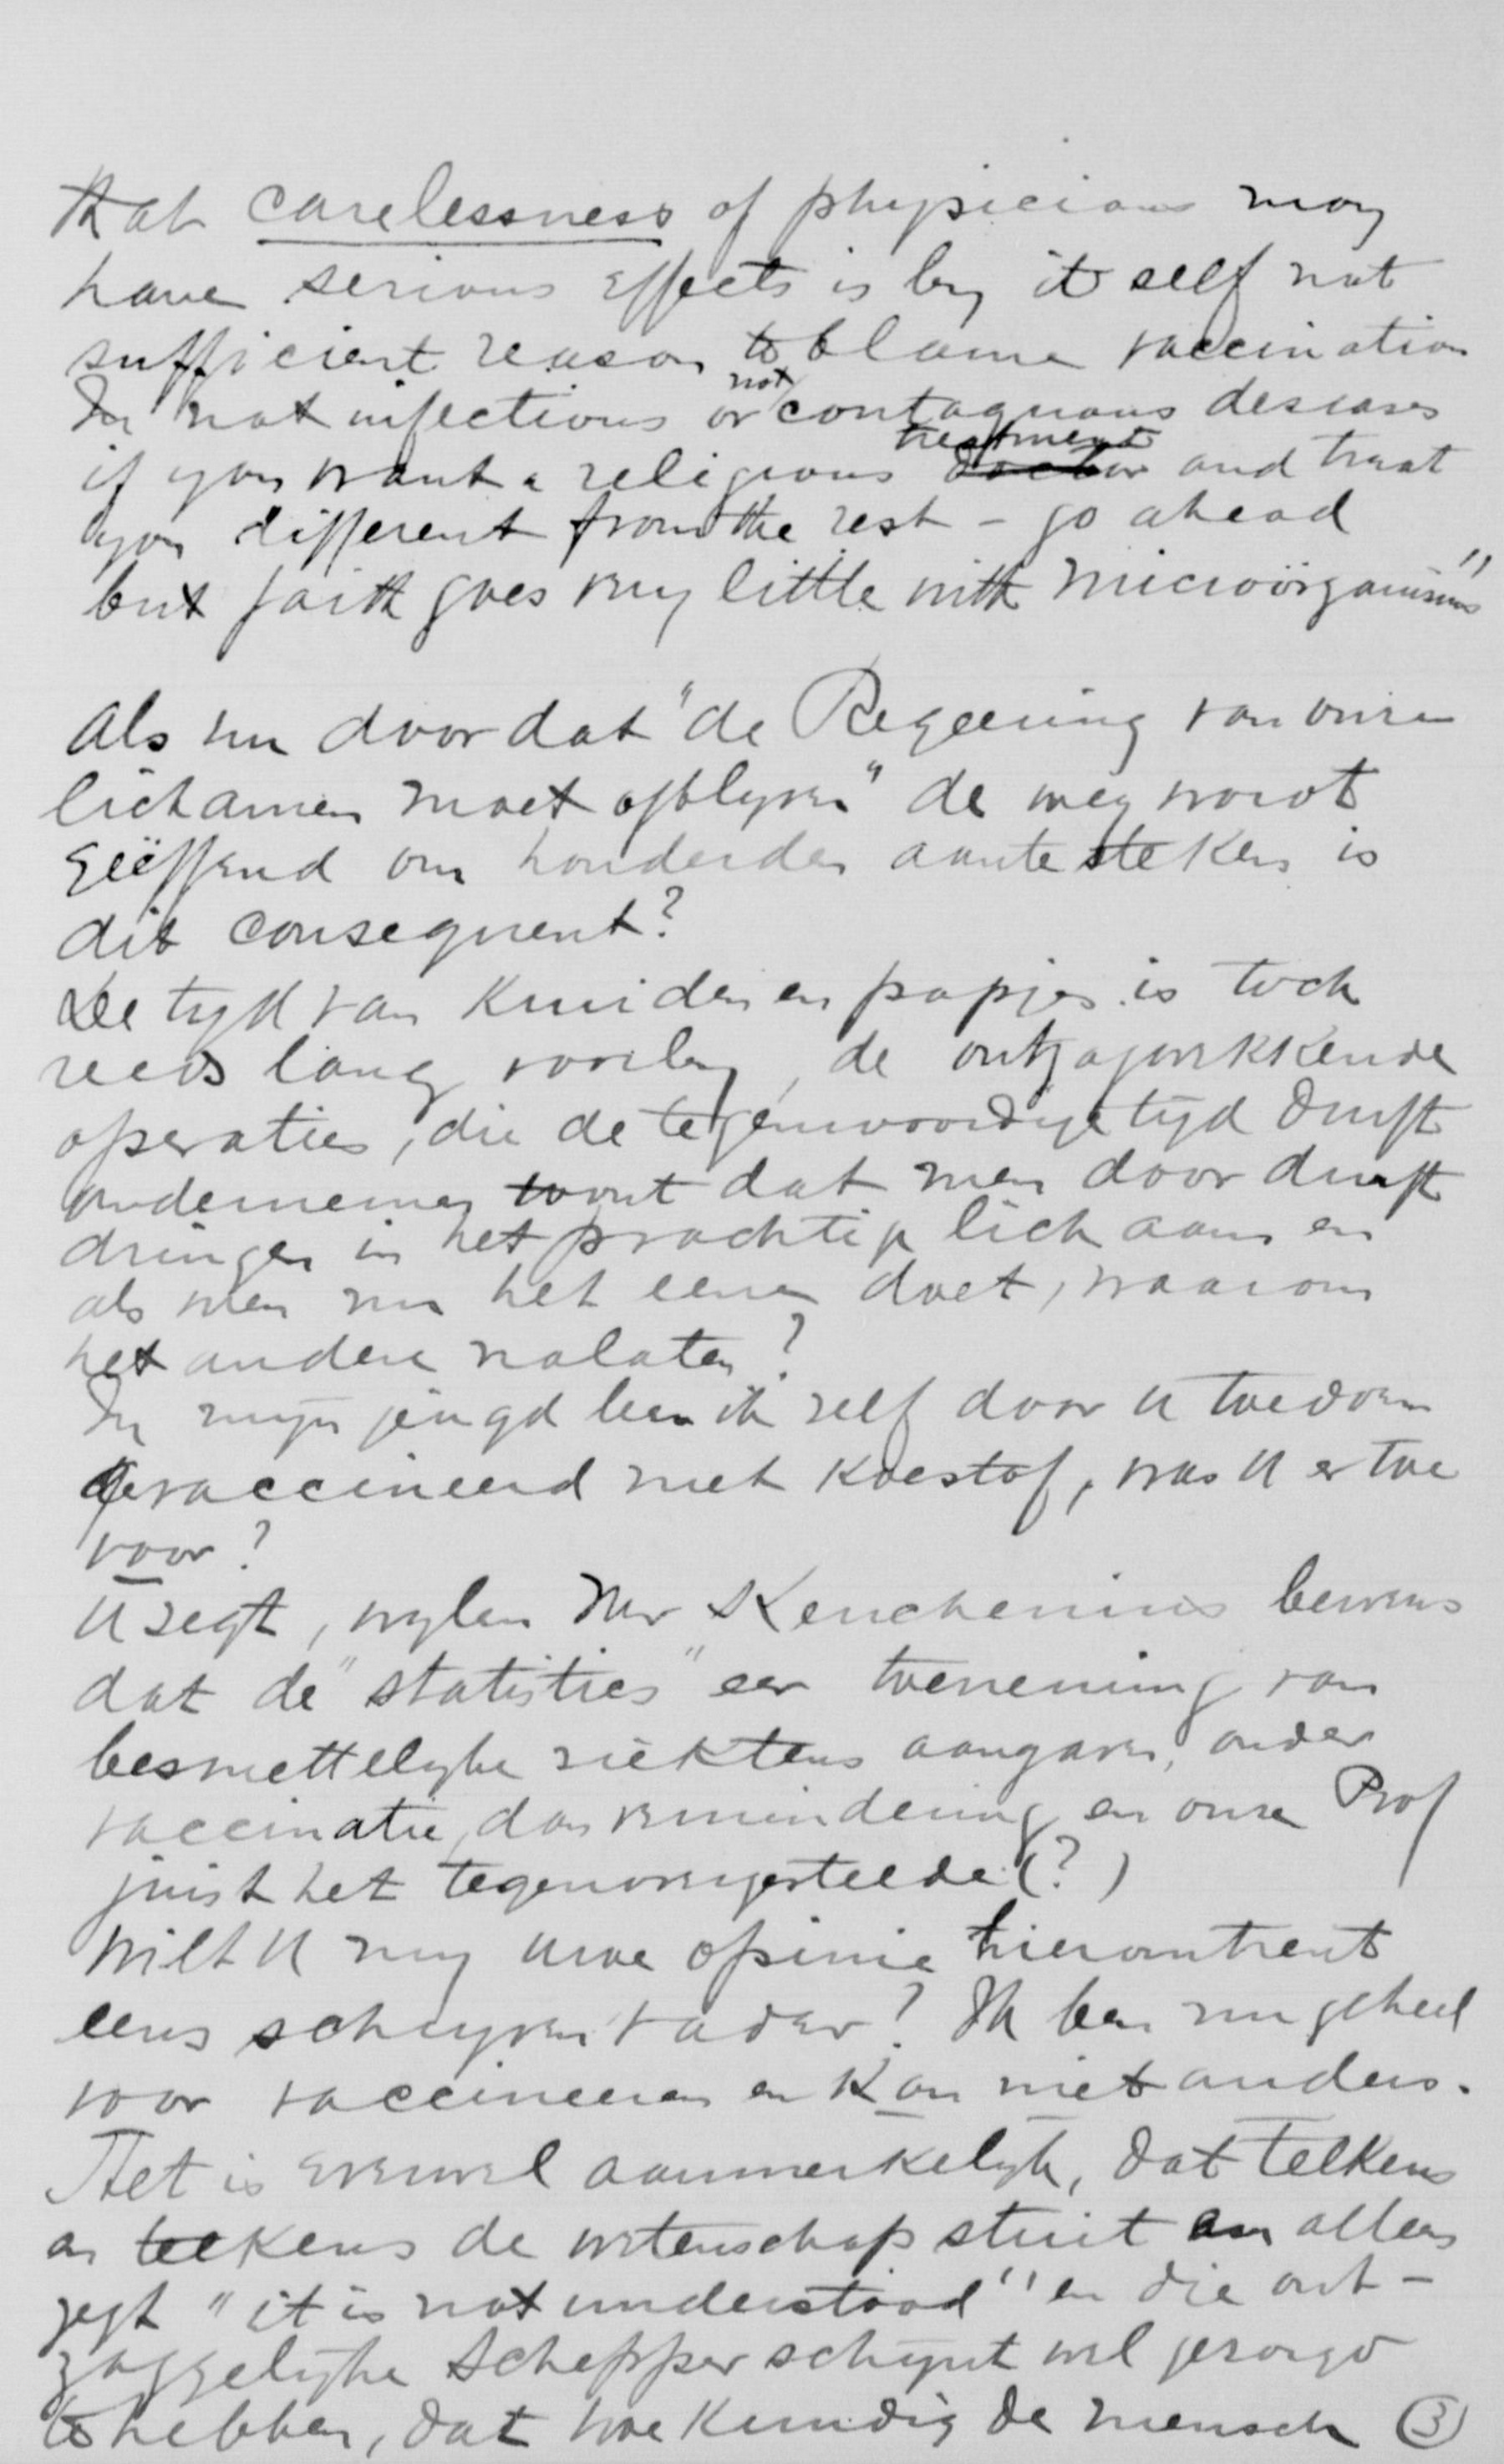 that carelessness of physicians may
have serious effects is by it self not
sufficient reason to blame vaccination
In not infectious or not contaguous deseases
if you want a religious treatment and treat
you different from the rest – go ahead
but faith goes very little with microörganisms"
Als nu door dat "de Regeering van onze
lichamen moet afblijven" de weg wordt
geëffend om honderden aantesteken is
dit consequent?
De tijd van kruiden en papjes is toch
reeds lang voorby, de ontzagwekkende
operaties, die de tegenwoordige tijd durft
ondernemen toont dat men door durft
dringen in het prachtige lichaam en
als men nu het eene doet, waarom
het andere nalaten?
In mijn jeugd ben ik zelf door U toedoen
gevaccineerd met koestof, was U er toe
voor?
U zegt, wylen Mr Keuchenius bewees
dat de "statistics" eer toeneming van
besmettelyke ziektens aangaven, onder
vaccinatie, dan vermindering en onze Prof
juist het tegenovergestelde (?)
Wilt U my uwe opinie hieromtrent
eens schryven Vader? Ik ben nu geheel
voor vaccineeren en kan niet anders.
Het is evenwel aanmerkelyk, dat telkens
en telkens de wetenschap stuit en alleen
zegt "it is not understood" en die ont-
zaggelyke Schepper schynt wel gezorgd
te hebben, dat hoe kundig de mensch (3)